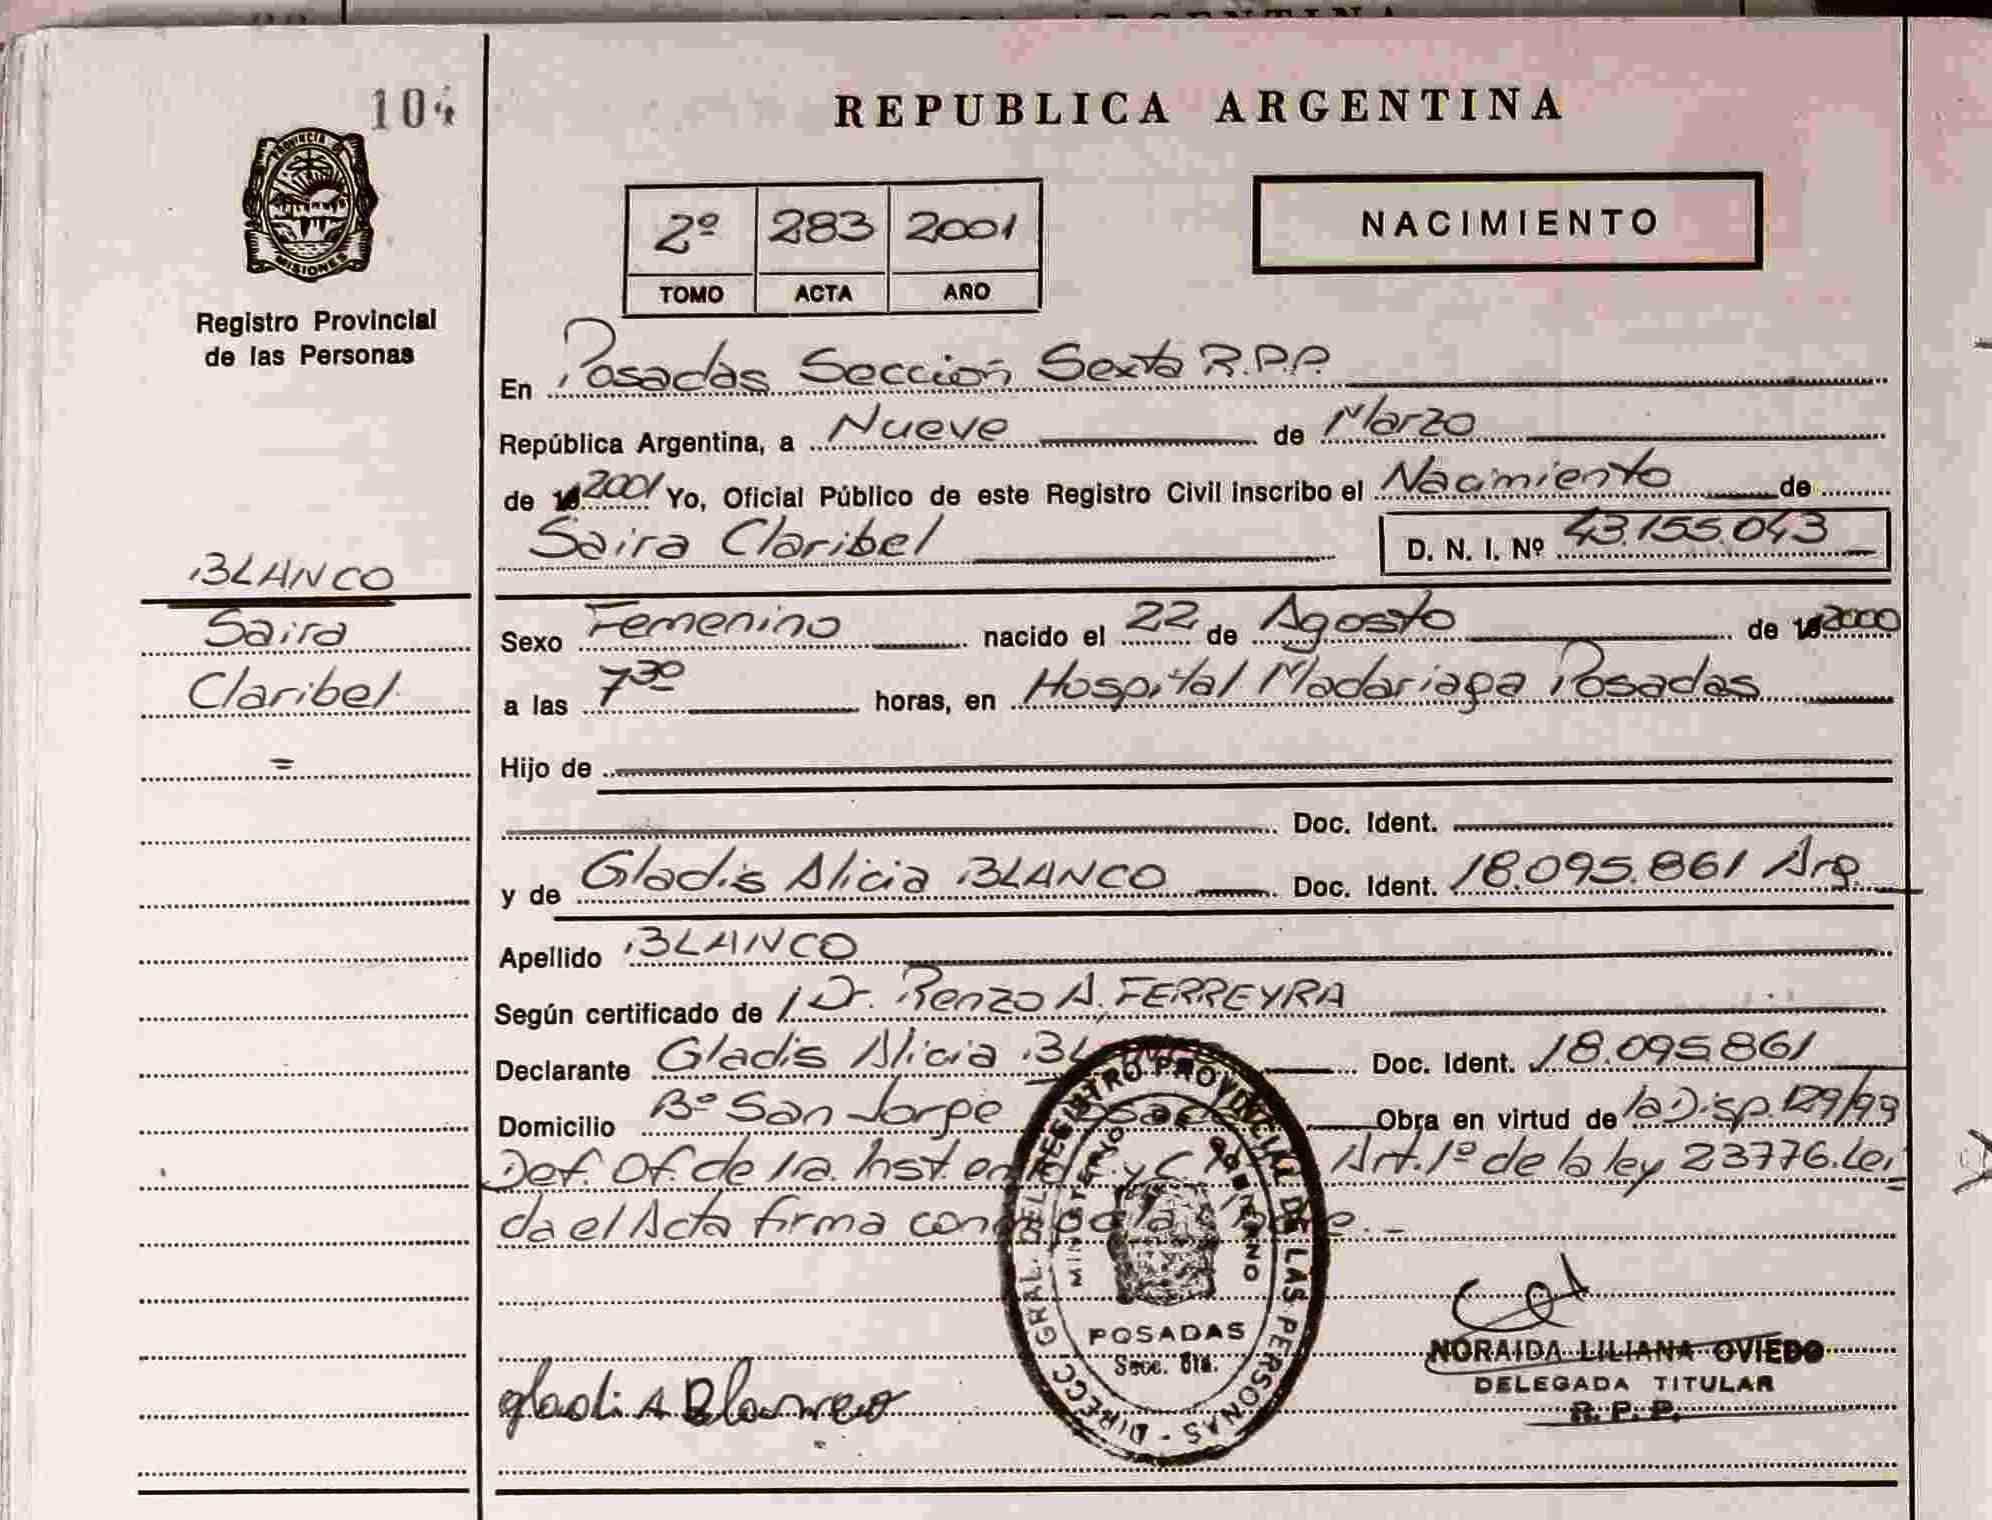 104
REPUBLICA ARGENTINA
PROVINCIA DE
MISIONES
Registro Provincial
de las Personas
2º 283 2001
TOMO ACTA AÑO
NACIMIENTO
En Posadas Sección Sexta R.P.P.
República Argentina, a Nueve de Marzo
de 2001 Yo, Oficial Público de este Registro Civil inscribo el Nacimiento de
Saira Claribel D. N. I. Nº 43.155.043
BLANCO
Saira
Claribel
=
Sexo Femenino nacido el 22 de Agosto de 2000
a las 7 30 horas, en Hospital Madariaga Posadas
Hijo de
Doc. Ident.
y de Gladis Alicia BLANCO Doc. Ident. 18.095.861 Arg.
Apellido BLANCO
Según certificado de Dr. Renzo A. FERREYRA
Declarante Gladis Alicia BLANCO Doc. Ident. 18.095.861
Domicilio Bº San Jorge Posadas Obra en virtud de la Disp. 129/99
Def. Of. de 1ra. Inst. en y Art. 1º de la ley 23776. Lei
da el Acta firma
DIRECC GRAL. DEL REGISTRO PROVINCIAL DE LAS PERSONAS
MINISTERIO DE GOBIERNO
POSADAS
Secc. 6ta.
Gladi A Blanco
NORAIDA LILIANA OVIEDO
DELEGADA TITULAR
R. P. P.